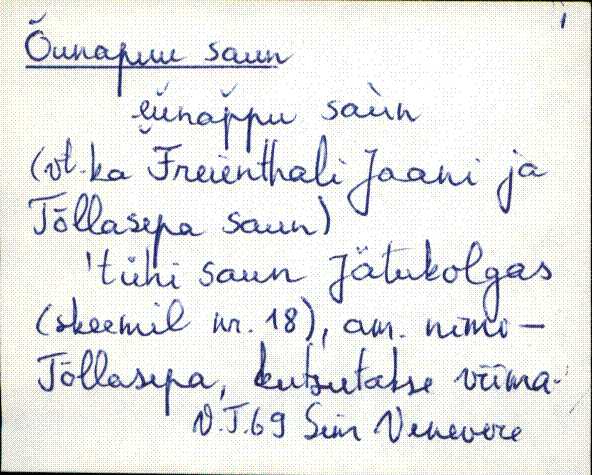 1
Õunapuu saun
eũnappu saùn
(vt. ka Freienthali Jaani ja
Tõllasepa saun)
'tühi saun Jätukolgas
(skeemil nr. 18), am. nimi –
Tõllasepa, kutsutakse viima-
V.T.69 Sim Venevere